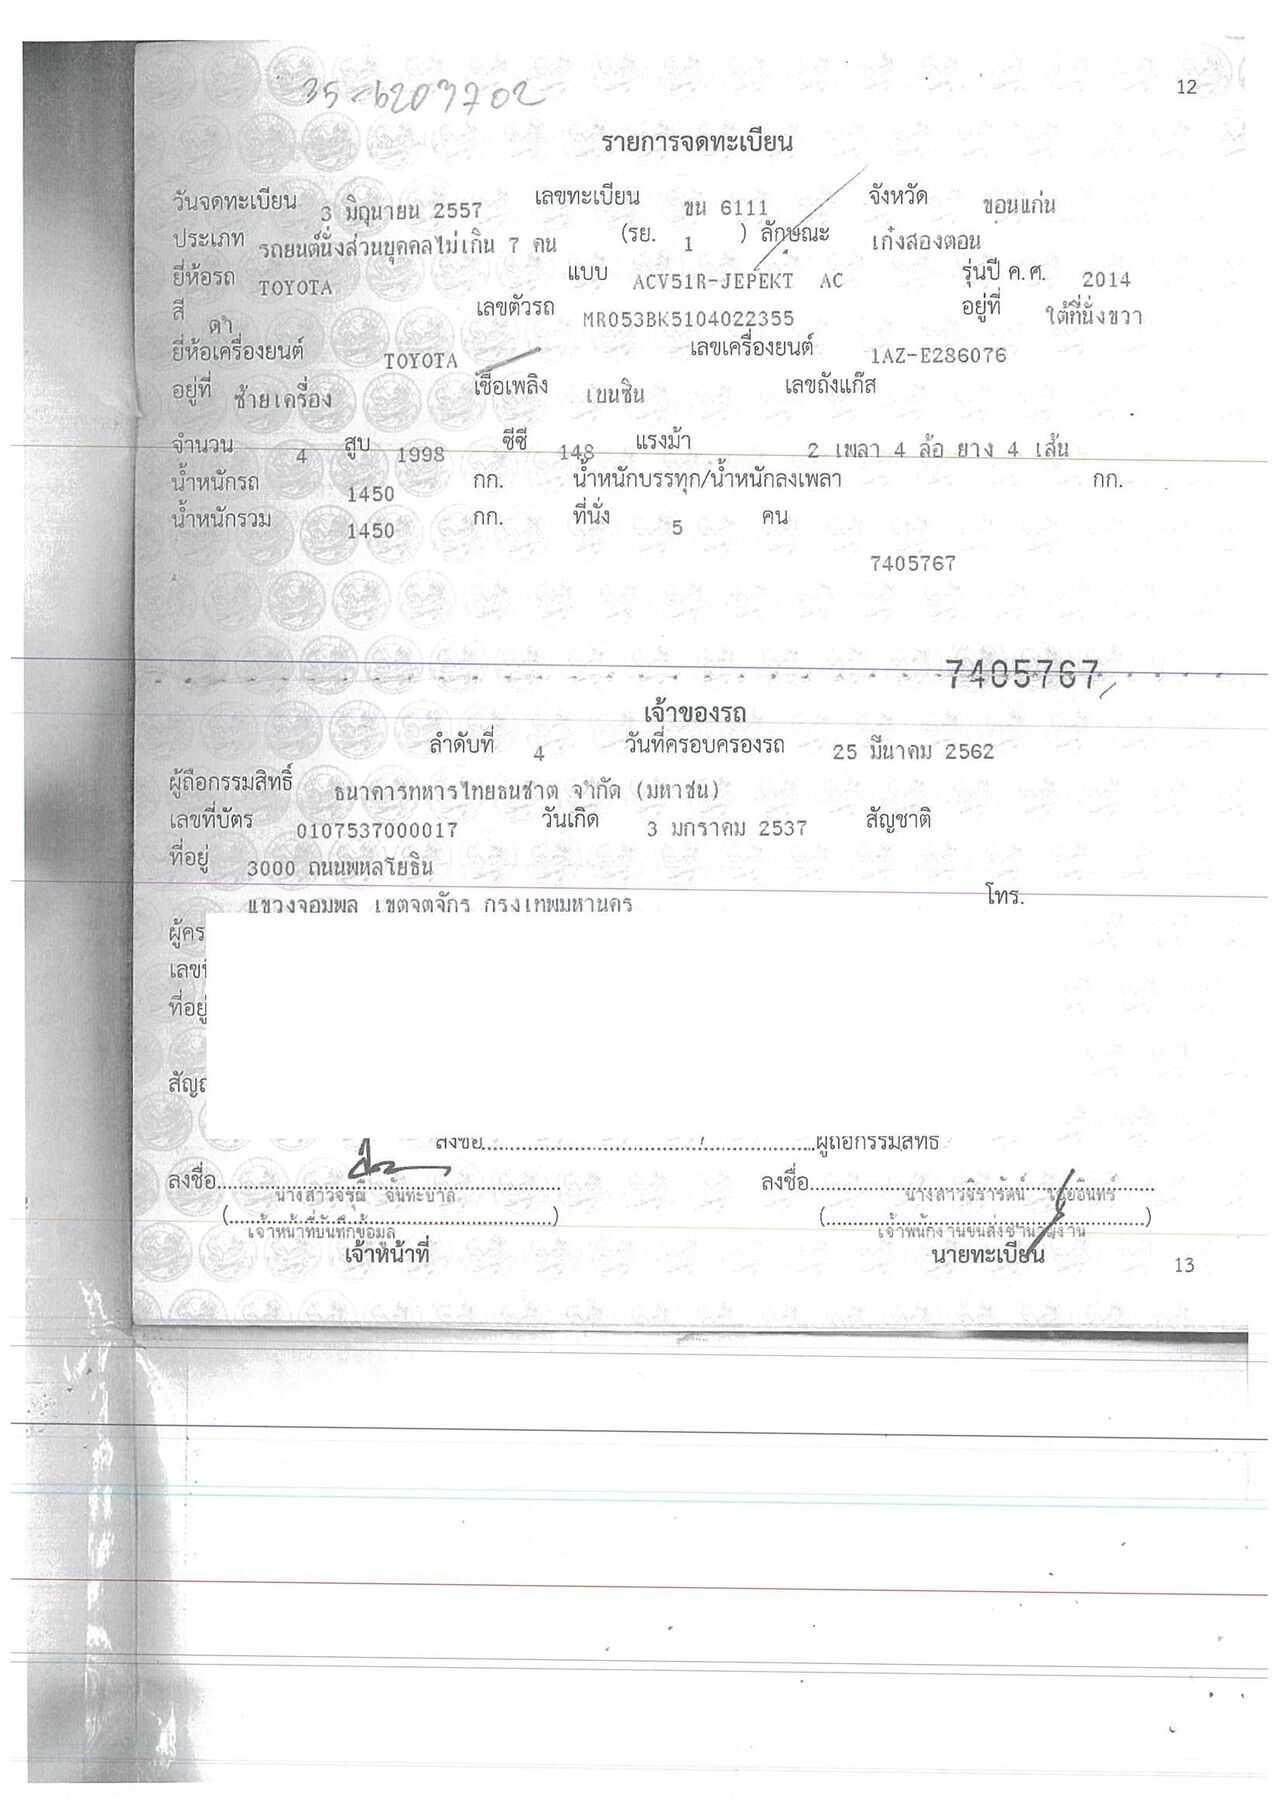 35-6203702
12
รายการจดทะเบียน
วันจดทะเบียน 3 มิถุนายน 2557 เลขทะเบียน ขน 6111 จังหวัด ขอนแก่น
ประเภท รถยนต์นั่งส่วนบุคคลไม่เกิน 7 คน (รย. 1 ) ลักษณะ เก๋งสองตอน
ยี่ห้อรถ TOYOTA แบบ ACV51R-JEPEKT AC รุ่นปี ค.ศ. 2014
สี ดำ เลขตัวรถ MR053BK5104022355 อยู่ที่ ใต้ที่นั่งขวา
ยี่ห้อเครื่องยนต์ TOYOTA เลขเครื่องยนต์ 1AZ-E286076
อยู่ที่ ซ้ายเครื่อง เชื้อเพลิง เบนซิน เลขถังแก๊ส
จำนวน 4 สูบ 1998 ซีซี 148 แรงม้า 2 เพลา 4 ล้อ ยาง 4 เส้น
น้ำหนักรถ 1450 กก. น้ำหนักบรรทุก/น้ำหนักลงเพลา กก.
น้ำหนักรวม 1450 กก. ที่นั่ง 5 คน
7405767
7405767
เจ้าของรถ
ลำดับที่ 4 วันที่ครอบครองรถ 25 มีนาคม 2562
ผู้ถือกรรมสิทธิ์ ธนาคารทหารไทยธนชาต จำกัด (มหาชน)
เลขที่บัตร 0107537000017 วันเกิด 3 มกราคม 2537 สัญชาติ
ที่อยู่ 3000 ถนนพหลโยธิน
แขวงจอมพล เขตจตุจักร กรุงเทพมหานคร โทร.
ที่อยู่
ลงชื่อ....................ผู้ถือกรรมสิทธิ์
ลงชื่อ.................... ลงชื่อ....................
นางสาวจรุณี จันทะบาล นางสาวจิรารัตน์
(....................) (....................)
เจ้าหน้าที่บันทึกข้อมูล เจ้าพนักงานขนส่งชำนาญงาน
เจ้าหน้าที่ นายทะเบียน
13